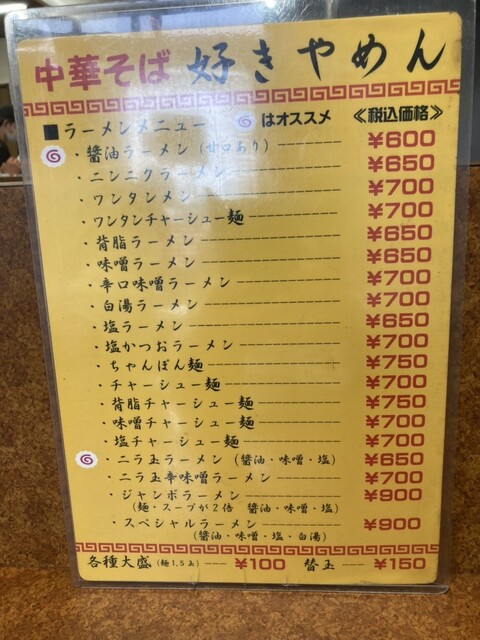 中華そば 好きやめん
■ラーメンメニュー はオススメ 《税込価格》
・醤油ラーメン (甘口あり) ¥600
・ニンニクラーメン ¥650
・ワンタンメン ¥700
・ワンタンチャーシュー麺 ¥700
・背脂ラーメン ¥650
・味噌ラーメン ¥650
・辛口味噌ラーメン ¥700
・白湯ラーメン ¥700
・塩ラーメン ¥650
・塩かつおラーメン ¥700
・ちゃんぽん麺 ¥750
・チャーシュー麺 ¥700
・背脂チャーシュー麺 ¥750
・味噌チャーシュー麺 ¥700
・塩チャーシュー麺 ¥700
・ニラ玉ラーメン (醤油・味噌・塩) ¥650
・ニラ玉辛味噌ラーメン ¥700
・ジャンボラーメン ¥900
(麺・スープが2倍 醤油・味噌・塩)
・スペシャルラーメン ¥900
(醤油・味噌・塩・白湯)
各種大盛(麺1.5玉) ¥100 替玉 ¥150